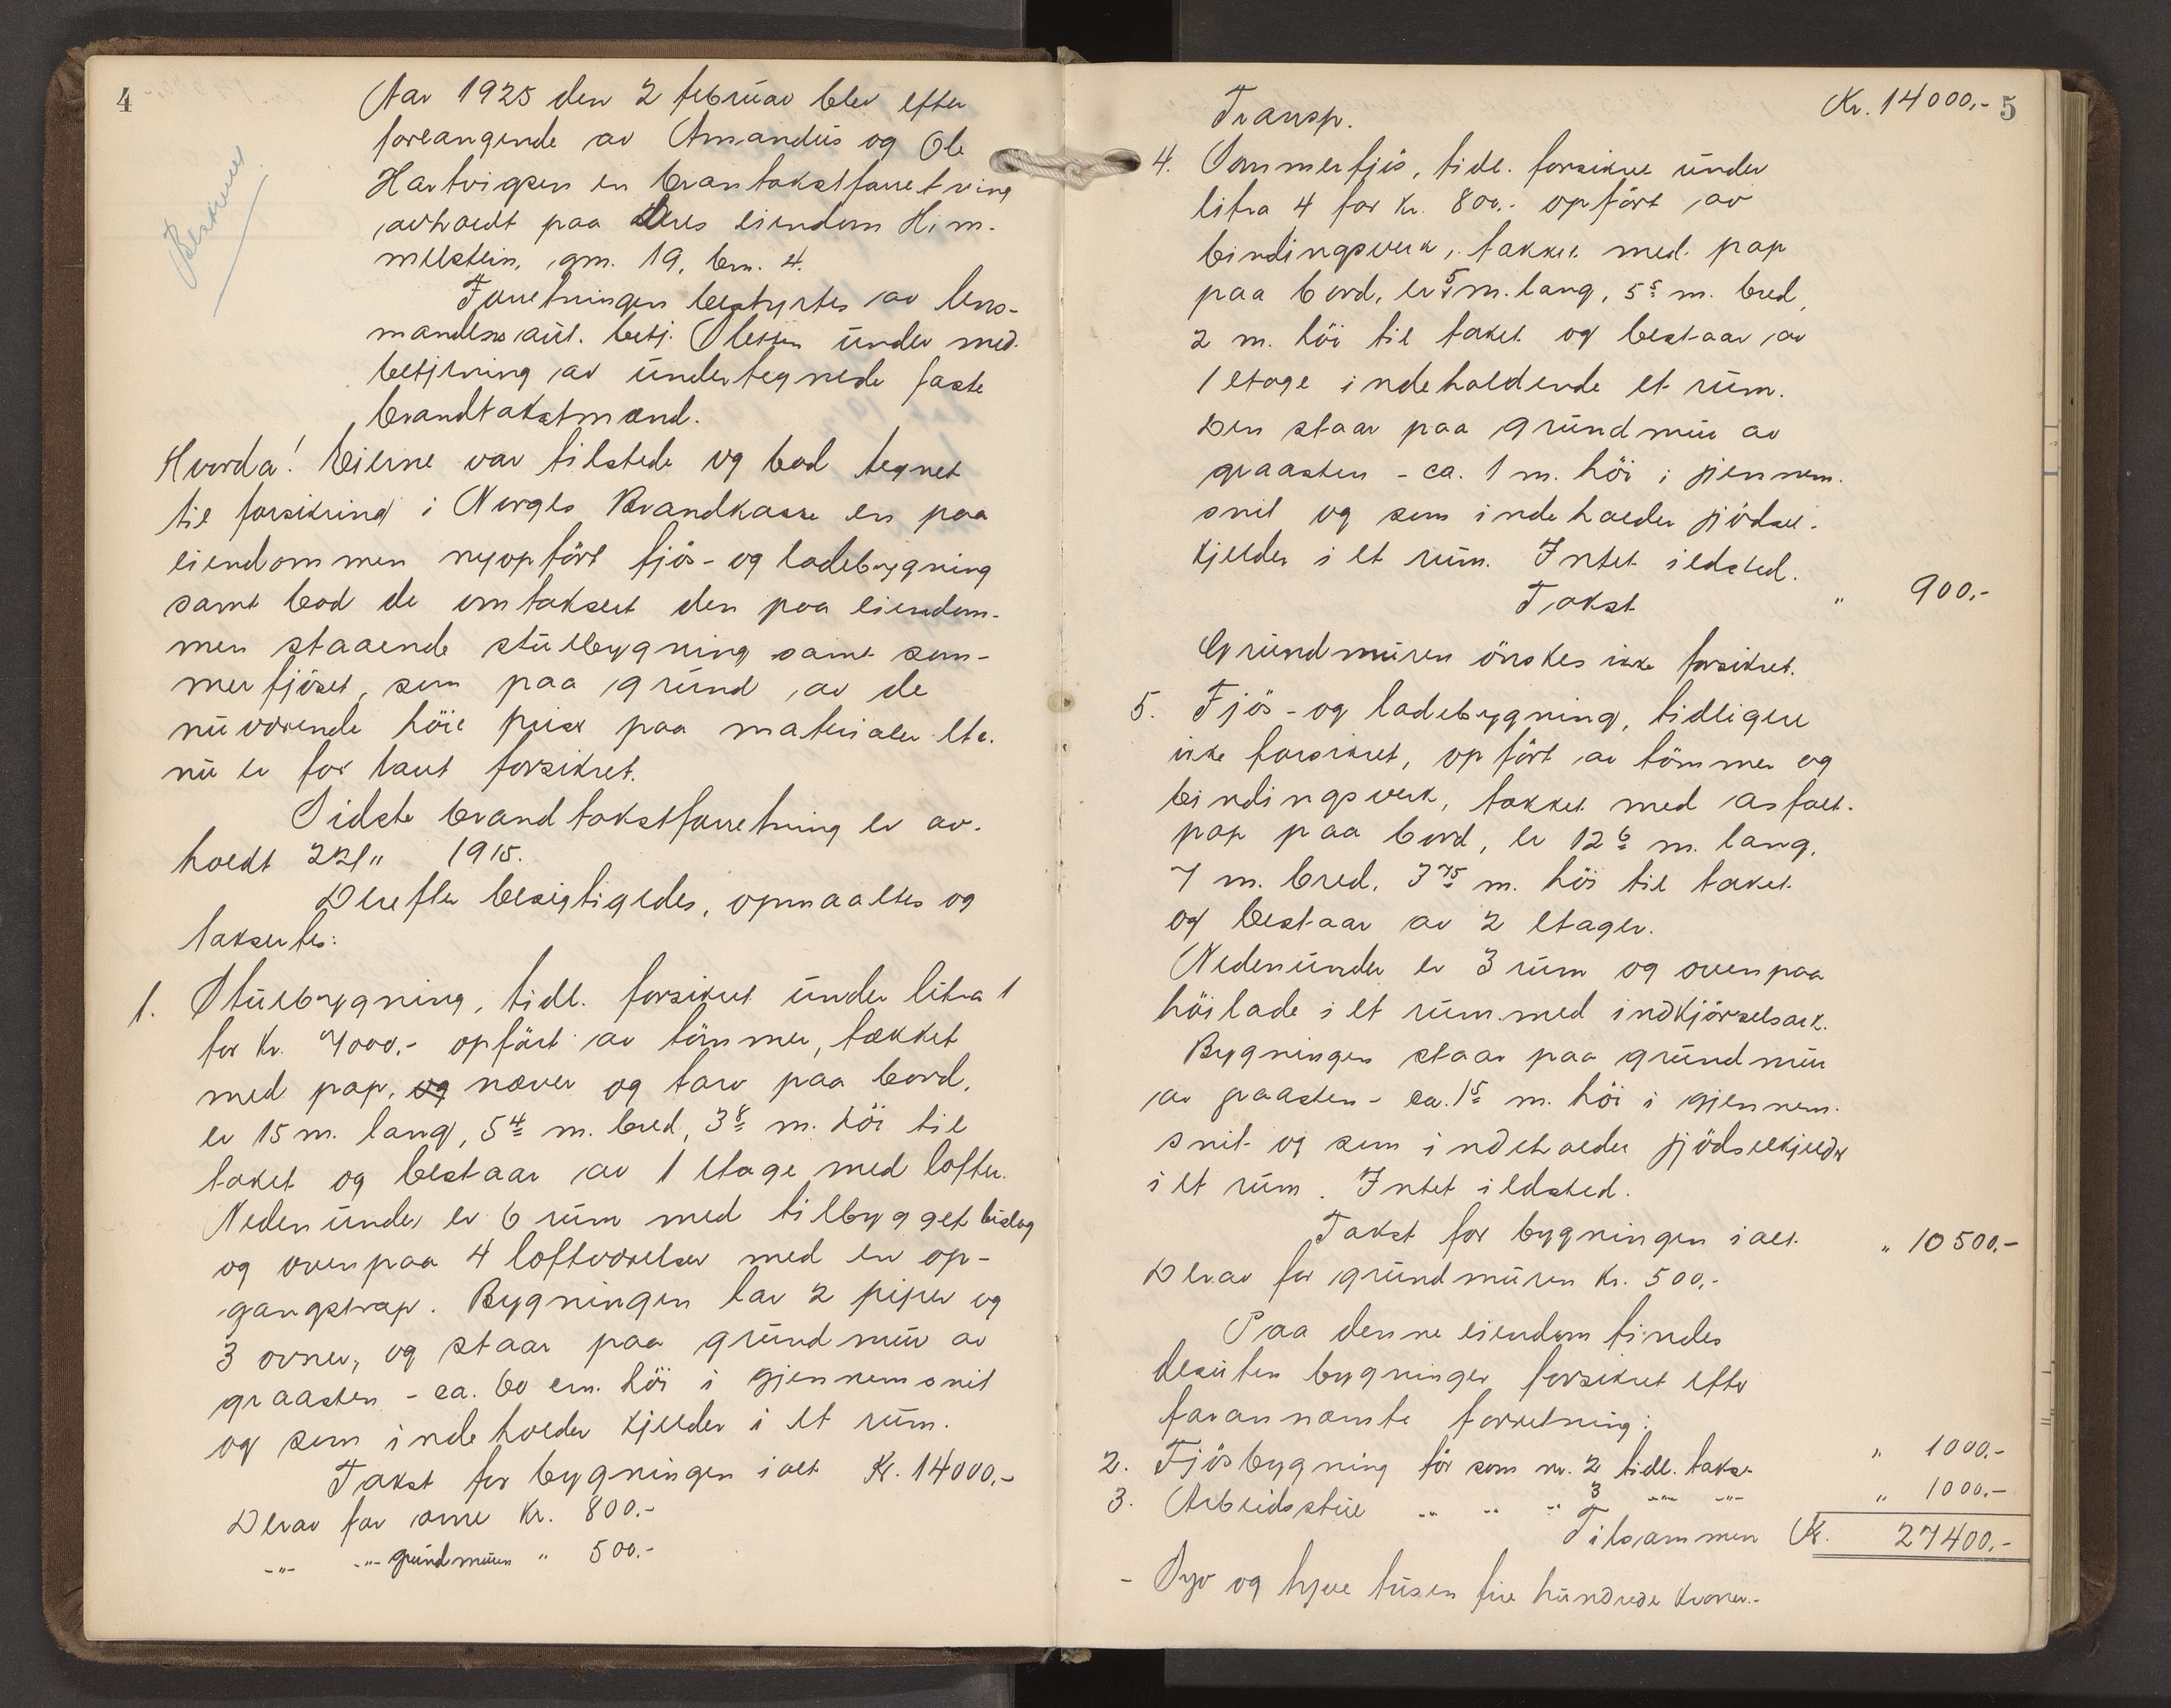 4
Beskrevet
Aar 1925 den 2 februar blev efter
forlangende av Amandus og Ole
Hartvigsen en brantakstforretning
avholdt paa deres eiendom Him-
melstein, gm. 19, brn. 4.
Forretningen bestyrtes av lens-
mandens aut. betj. Olessen under med-
betjening av undertegnede faste
brandtakstmænd.
Hvorda! Eierne var tilstede og bad tegnet
til forsikring i Norges Brandkasse en paa
eiendommen nyopført fjøs- og ladebygning
samt bad de omtaksert den paa eiendom-
men staaende stuebygning samt som-
merfjøset, som paa grund av de
nuværende høie priser paa materialer etc.
nu er for lavt forsikret.
Sidste brandtakstforretning er av-
holdt 1915.
Derefter besigtigedes, opmaaltes og
taksertes:
1. Stuebygning, tidl. forsikret under litra 1
for kr. 7000.- opført av tømmer, tækket
med pap, og næver og torv paa bord,
er 15 m. lang, 5 4 m. bred, 3 8 m. høi til
taket og bestaar av 1 etage med lofter.
Nedenunder er 6 rum med tilbygget bislag
og ovenpaa 4 loftværelser med en op-
gangstrap. Bygningen har 2 piper og
3 ovner, og staar paa grundmur av
graasten - ca. 60 cm. høi i gjennemsnit
og som indeholder kjelder i et rum.
Takst for bygningen ialt Kr. 14000,-
Derav for ovne Kr. 800.-
-"- -"- grundmuren " 500.-
5
Transp. Kr. 14000,-
4. Sommerfjøs, tidl. forsikret under
litra 4 for kr. 800.- opført av
bindingsverk, tækket med pap
paa bord, er 5 m. lang, 5 5 m. bred,
2 m. høi til taket og bestaar av
1 etage indeholdende et rum.
Den staar paa grundmur av
graasten - ca. 1 m. høi i gjennem-
snit og som indeholder gjødsel-
kjelder i et rum. Intet ildsted.
Takst " 900,-
Grundmuren ønskes ikke forsikret.
5. Fjøs- og ladebygning, tidligere
ikke forsikret, opført av tømmer og
bindingsverk, tækket med asfalt-
pap paa bord, er 12 6 m. lang,
7 m. bred, 3 75 m. høi til taket
og bestaar av 2 etager.
Nedenunder er 3 rum og ovenpaa
høilade i et rum med indkjørselsark.
Bygningen staar paa grundmur
av graasten - ca. 1 5 m. høi i gjennem-
snit og som indeholder gjødselkjelder
i et rum. Intet ildsted.
Takst for bygningen ialt " 10500,-
Derav for grundmuren Kr. 500,-
Paa denne eiendom findes
desuten bygninger forsikret efter
forannævnte forretning:
2. Fjøsbygning før som nr. 2 tidl. takst " 1000,-
3. Arbeidsstue " " " 3 -"- -"- " 1000,-
Tilsammen Kr. 27400,-
- Syv og tyve tusen fire hundrede kroner.-